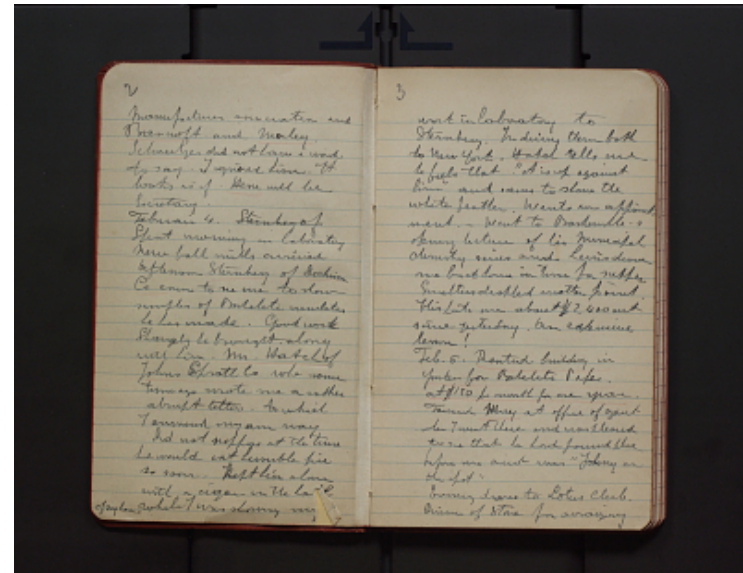 2
Manufacturers association and
Bancroft and Morley.
Schweitzer did not have a word
to say. I advised him. It
looks as if Hene will be
Secretary.
February 4.
Spent morning in laboratory
New ball mills arrived
Afternoon Steinberg of
Co came to see me to show
samples of Bakelite insulators
he has made. Good work
Strangely he brought along
with him Mr. Hatch of
John Spratt Co who some
time ago wrote me a rather
abrupt letter. To which
I answered in my own way
Did not suppose at the time
he would eat humble pie
so soon. Kept him alone
with a cigar in the
while I was showing my
3
work in laboratory to
Steinberg. In driving them both
to New York. Hatch tells me
he feels that "it is up against
him" and seems to show the
white feather. Wants an appoint
ment. Went to
opening lecture of his Municipal
chemistry series and
me back home in time for supper
Smelters dropped another point.
This puts me about $2400 out
since yesterday. An expensive
lesson!
Feb. 5. Rented building in
Yonkers for Bakelite Pipe.
at $150 p month for one year.
Found at office of agent
when I went there and was pleased
to see that he had found place
before me and was "Johnny on
the spot"
Evening drove to Lotus Club.
Dinner of for arranging